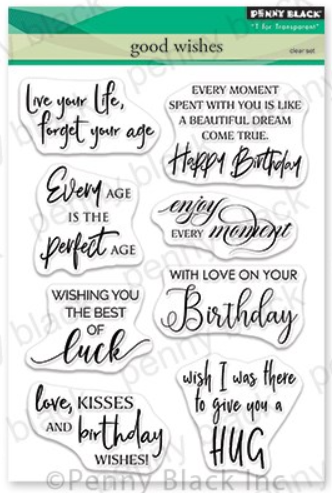 PENNY BLACK
"T for Transparent"
good wishes
clear set
Live your life,
forget your age
EVERY MOMENT
SPENT WITH YOU IS LIKE
A BEAUTIFUL DREAM
COME TRUE.
Happy Birthday
Every AGE
IS THE
perfect AGE
enjoy
EVERY moment
WISHING YOU
THE BEST
OF
luck
WITH LOVE ON YOUR
Birthday
love, KISSES
AND birthday
WISHES!
wish I was there
to give you a
HUG
©Penny Black Inc